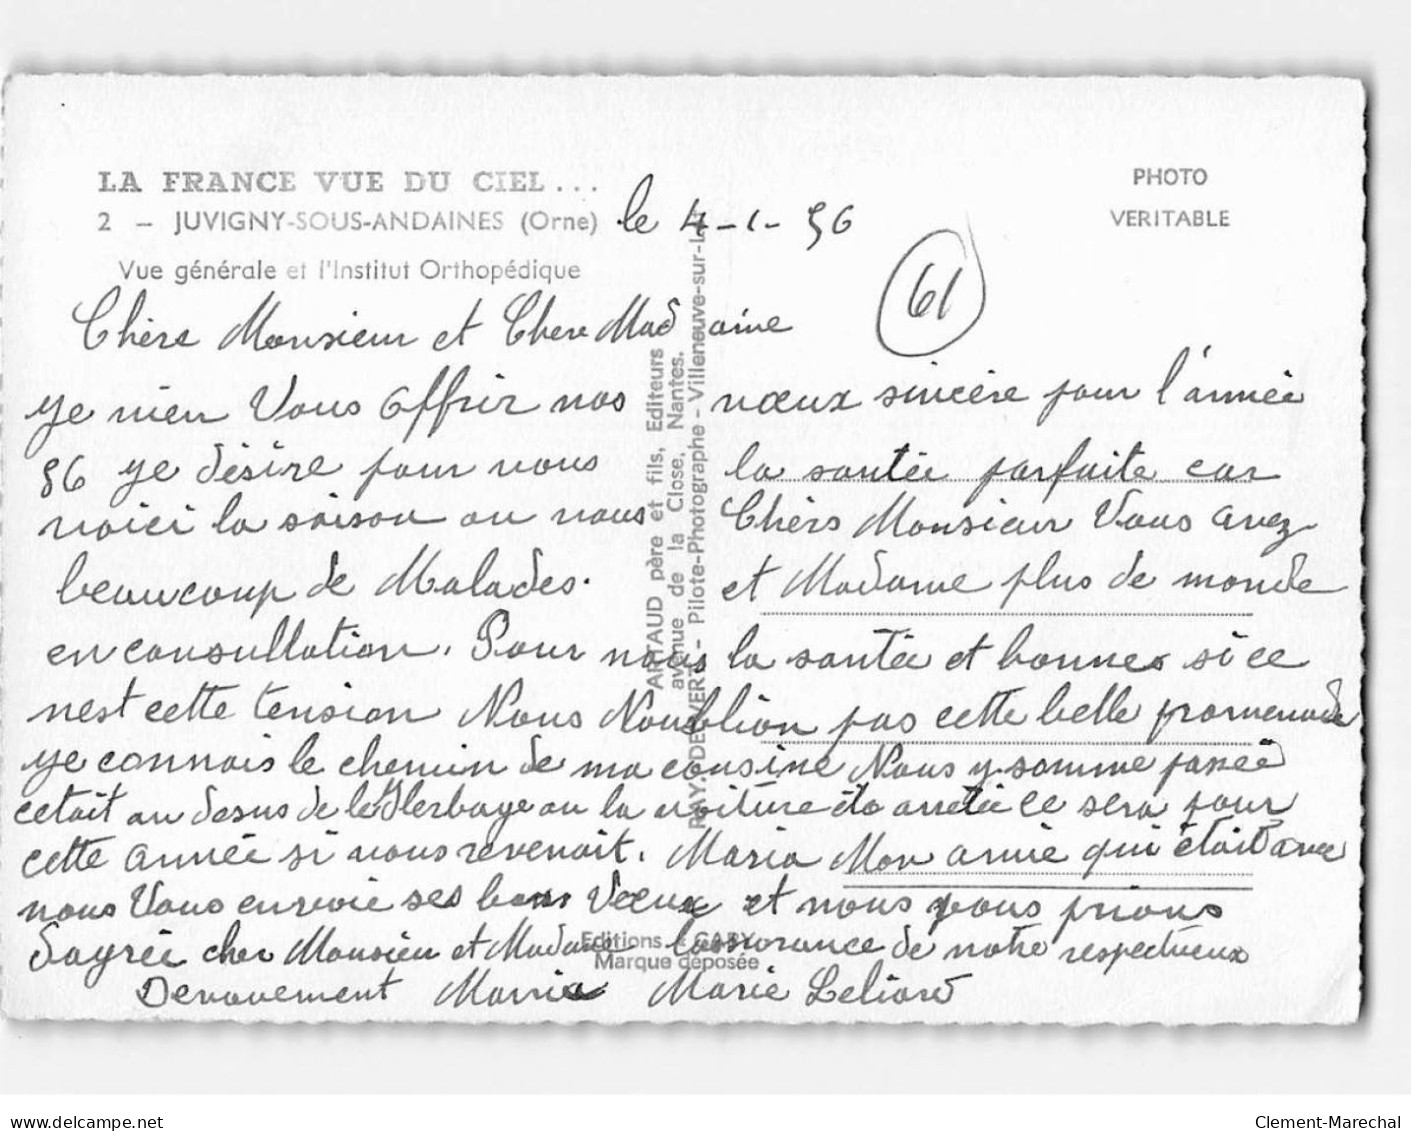 LA FRANCE VUE DU CIEL...
2 - JUVIGNY-SOUS-ANDAINES (Orne)
Vue générale et l'Institut Orthopédique
PHOTO
VERITABLE
le 4-1-56
61
Chère Monsieur et Chere Madame
ye vien Vous offrir nos vœux sincère pour l'année
56 ye désire pour vous la santée parfaite car
voici la saison ou vous Chèrs Monsieur Vous avez
beaucoup de Malades. et Madame plus de monde
en consultation. Pour nous la santée et bonne si ce
nest cette tension Nous Noublion pas cette belle promenade
ye connais le chemin de ma cousine Nous y somme passée
cetait au desus de le Herbage ou la voiture éta arretée ce sera pour
cette année si vous revenait. Maria Mon amie qui était avec
nous Vous envoie ses bons Vœux et nous vous prions
dayrée cher Monsieu et Madame lassurance de notre respectueux
Devouement Maria Marie Leliard
ARTAUD père et fils, Editeurs
avenue de la Close, Nantes.
RAY. DELVERT - Pilote-Photographe - Villeneuve-sur-Lot
Editions GABY
Marque déposée
www.delcampe.net
Clement-Marechal